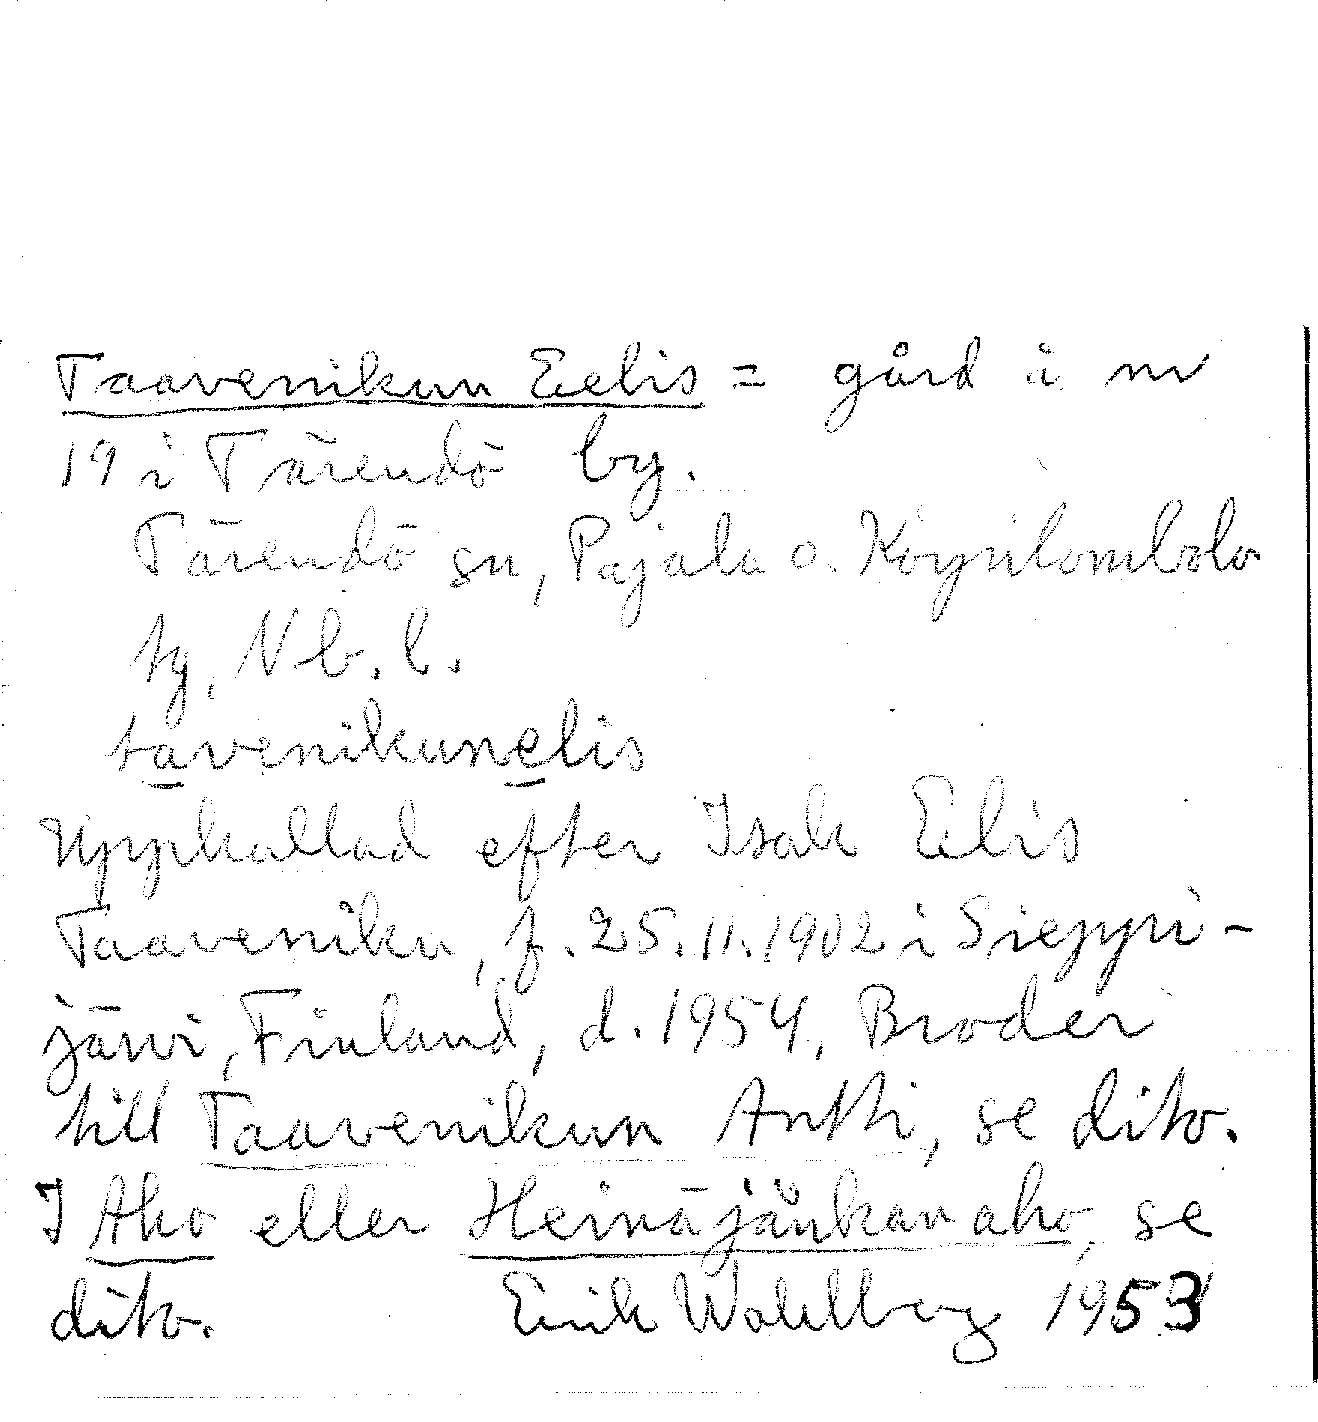 Taavenikun Eelis = gård å nr
19 i Tärendö by.
Tärendö sn, Pajala o. Korpilombolo
tg, Nb. l.
ta̲venikune̲lis
Uppkallad efter Isak Eelis
Taaveniku, f. 25.11.1902 i Sieppi-
järvi, Finland, d. 1954. Broder
till Taavenikun Antti, se dito.
I Aho eller Heinäjänkanaho, se
dito. Erik Wahlberg 1953